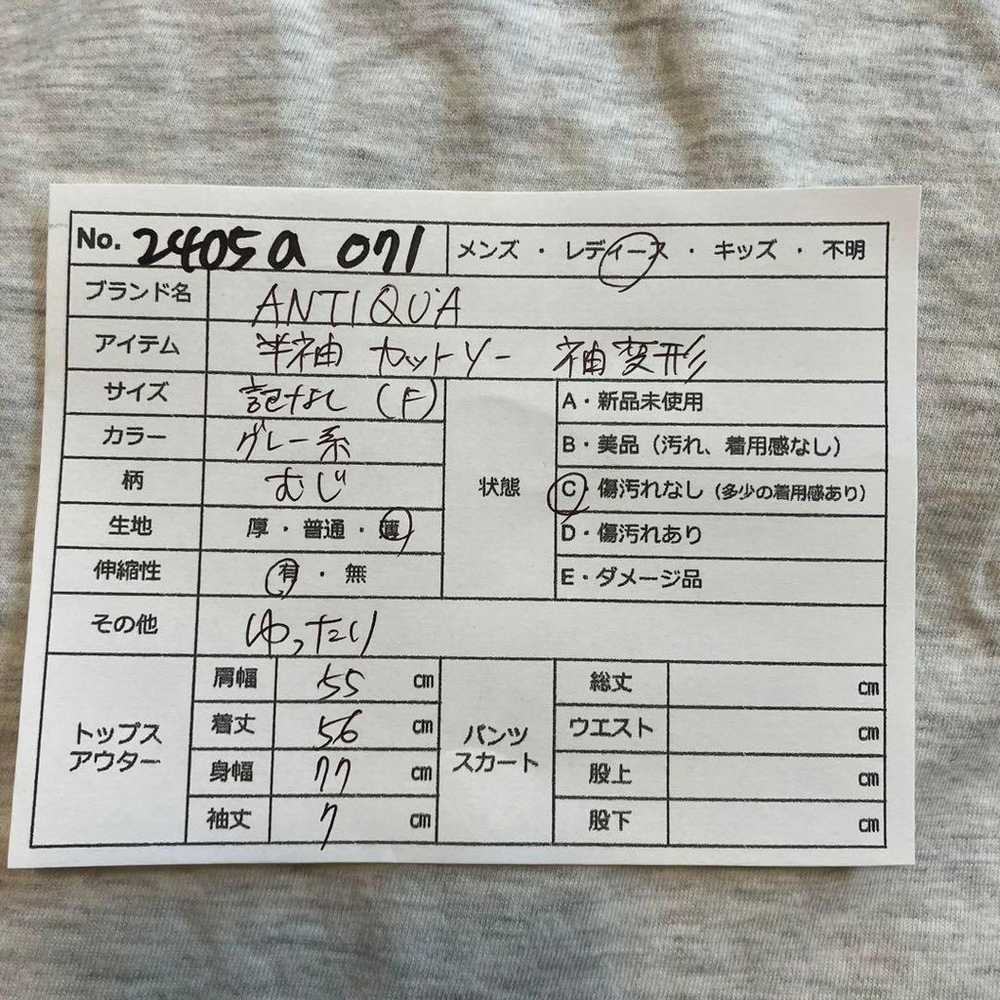 No. 2405a 071 メンズ ・ レディース ・ キッズ ・ 不明
ブランド名 ANTIQUA
アイテム 半袖 カットソー 袖変形
サイズ 記なし (F)
カラー グレー系
柄 むじ
生地 厚・普通・薄
伸縮性 有・無
状態
A・新品未使用
B・美品（汚れ、着用感なし）
C・傷汚れなし（多少の着用感あり）
D・傷汚れあり
E・ダメージ品
その他 ゆったり
トップス
アウター
肩幅 55 cm
着丈 56 cm
身幅 77 cm
袖丈 7 cm
パンツ
スカート
総丈 cm
ウエスト cm
股上 cm
股下 cm